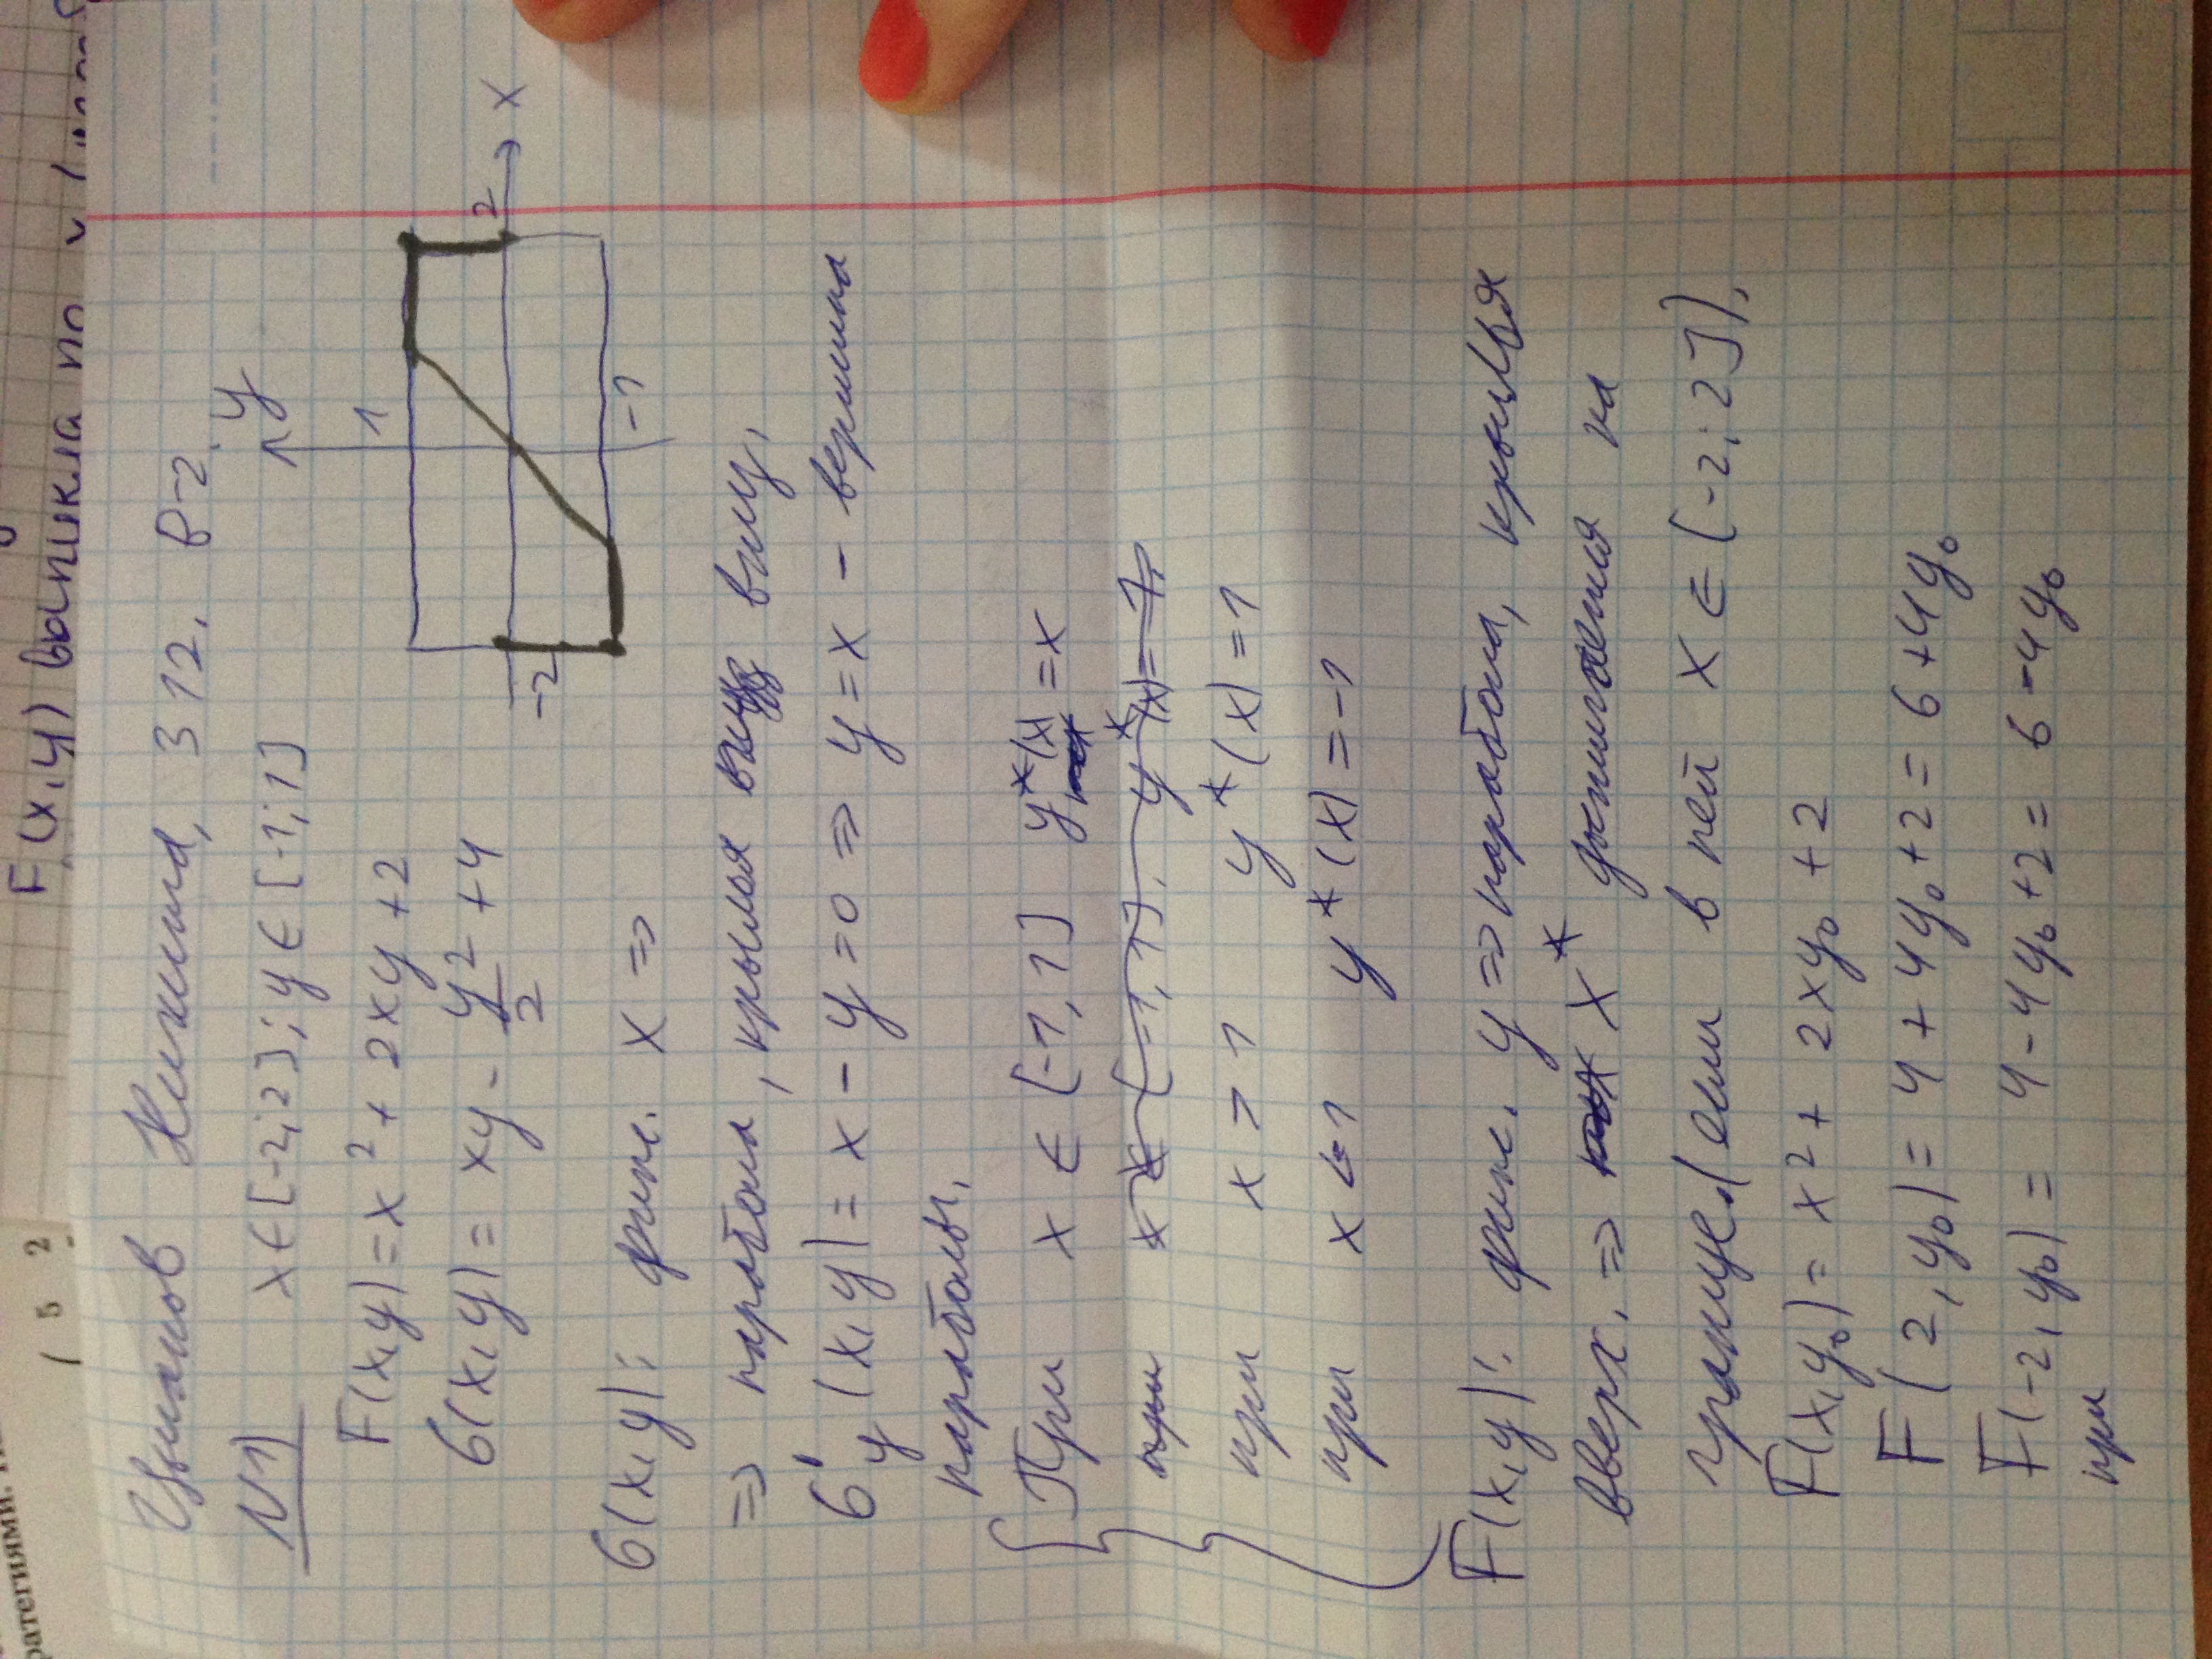 F(x,y) выпукла по y
ратегиями.
1 5 2
Цвилюков Никита, 312, В-2
N1) x∈[-2;2]; y∈[-1;1]
F(x,y)=x²+2xy+2
G(x,y)=xy-y²/2+4
y
1
x
2
-2
-1
G(x,y): фикс. x ⇒
⇒ парабола, крылья вниз,
G'y(x,y)=x-y=0 ⇒ y=x - вершина
параболы.
{ При x∈[-1,1] y*(x)=x
при x>1 y*(x)=1
при x<-1 y*(x)=-1
F(x,y): фикс. y ⇒ парабола, крылья
вверх. ⇒ x* достигается на
границе (если в ней x∈[-2;2]).
F(x,y₀)=x²+2xy₀+2
F(2,y₀)=4+4y₀+2=6+4y₀
F(-2,y₀)=4-4y₀+2=6-4y₀
при